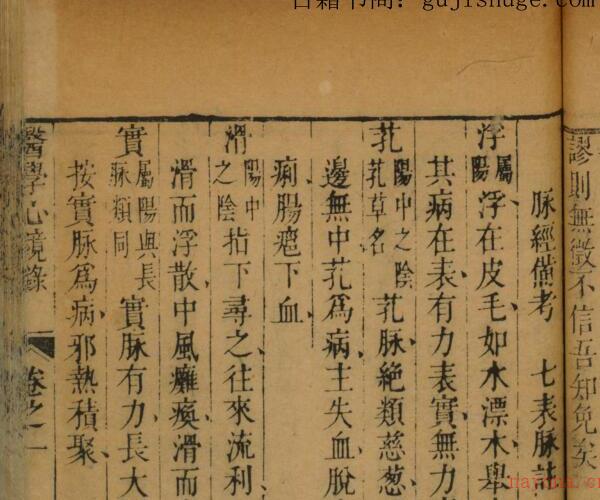 古籍书阁：gujishuge.com
謬則無徵不信吾知免矣
脉經備考　七表脉
浮屬陽浮在皮毛如水漂木舉
其病在表有力表實無力
芤陽中之陰芤草名芤脉絶類慈葱
邊無中芤爲病主失血脫
痢腸瘡下血
滑陽中之陰指下尋之往來流利
滑而浮散中風癱瘓滑而
實屬陽與長脉類同實脉有力長大
按實脉爲病邪熱積聚
醫學心鏡錄　卷之一